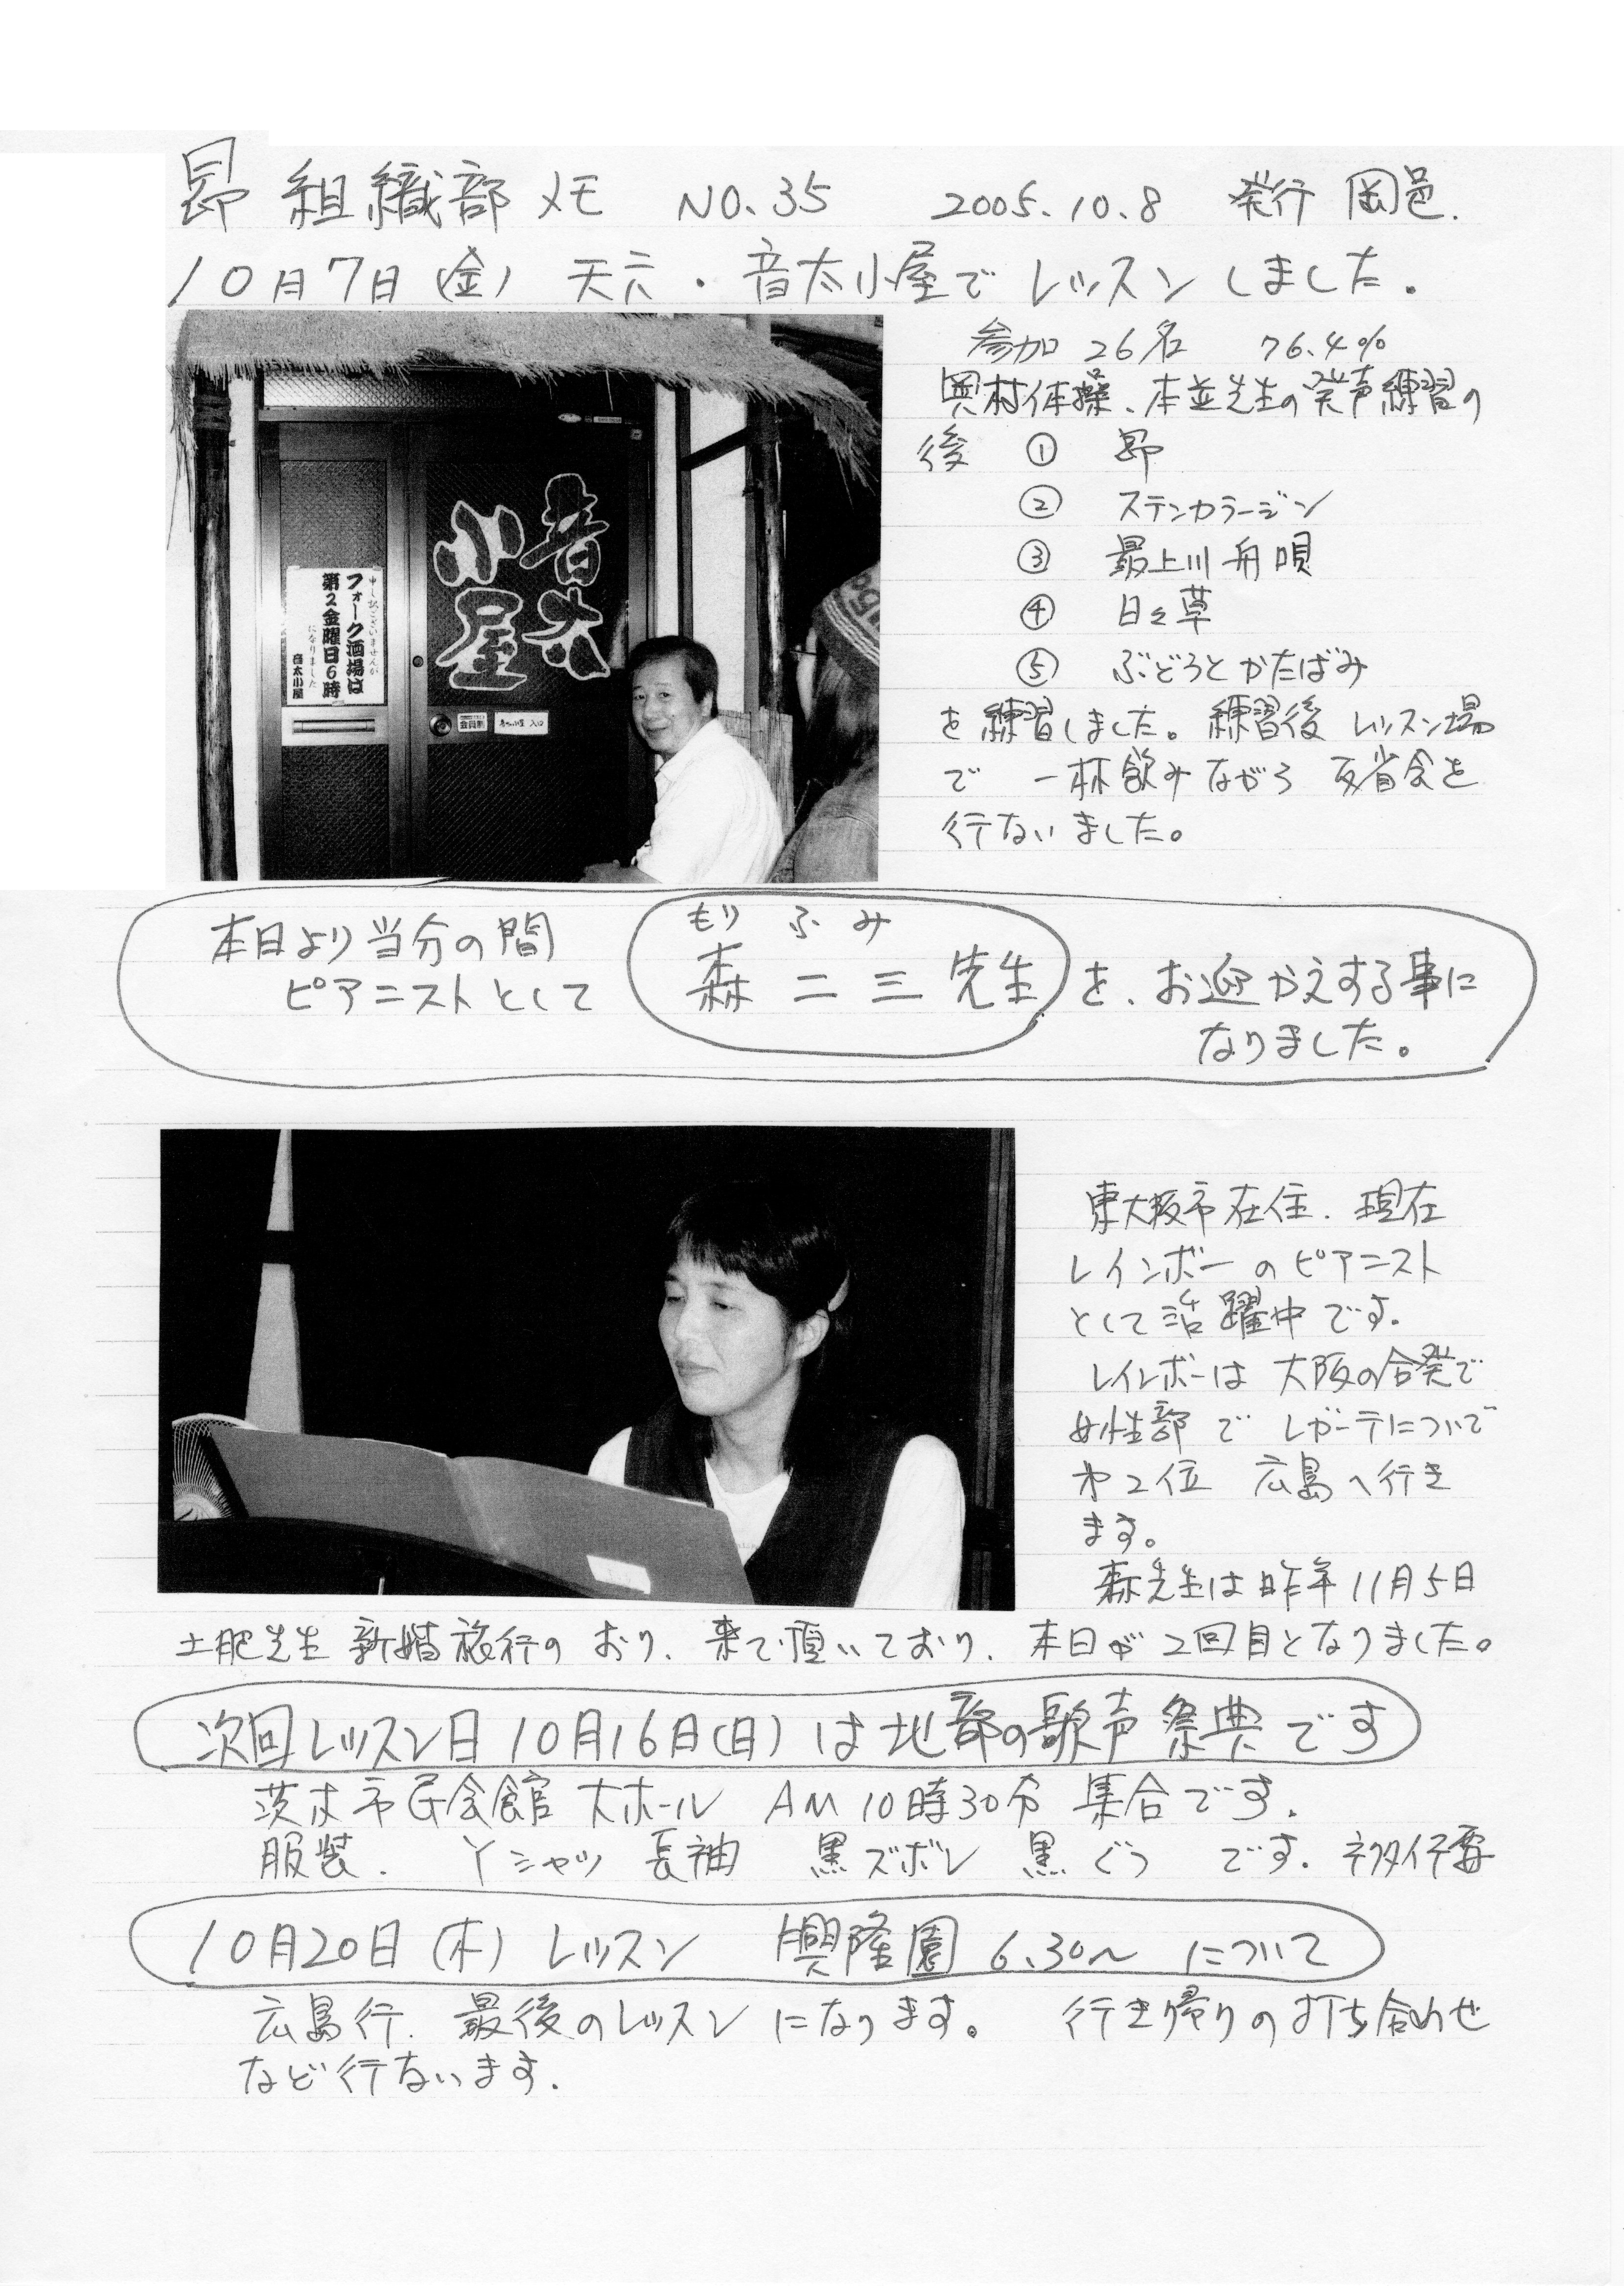 昴 組織部メモ NO.35 2005.10.8 発行 岡邑.
10月7日(金) 天六・音太小屋でレッスンしました.
参加 26名 76.4%
奥村体操、本並先生の発声練習の
後 ① 昴
② ステンカラージン
③ 最上川舟唄
④ 日々草
⑤ ぶどうとかたばみ
を練習しました。練習後 レッスン場
で 一杯飲みながら 反省会を
行ないました。
音太
小屋
申し訳ございませんが
フォーク酒場は
第2金曜日6時
になりました
音太小屋
会員制
入口
本日より当分の間
ピアニストとして
もり ふ み
森 二 三 先生
を、お迎かえする事に
なりました。
東大阪市在住. 現在
レインボーのピアニスト
として活躍中です.
レインボーは 大阪の合発で
女性部で レガーテについで
第2位 広島へ行き
ます。
森先生は昨年11月5日
土肥先生 新婚旅行の おり、来て頂いており、本日が2回目となりました。
次回レッスン日10月16日(日)は地部の歌声祭典です
茨木市民会館 大ホール AM10時30分 集合です.
服装. Yシャツ 長袖 黒ズボン 黒ぐつ です. ネクタイ不要
10月20日(木) レッスン 興隆園 6.30〜 について
広島行. 最後のレッスンになります。 行き帰りの打ち合わせ
など行ないます.